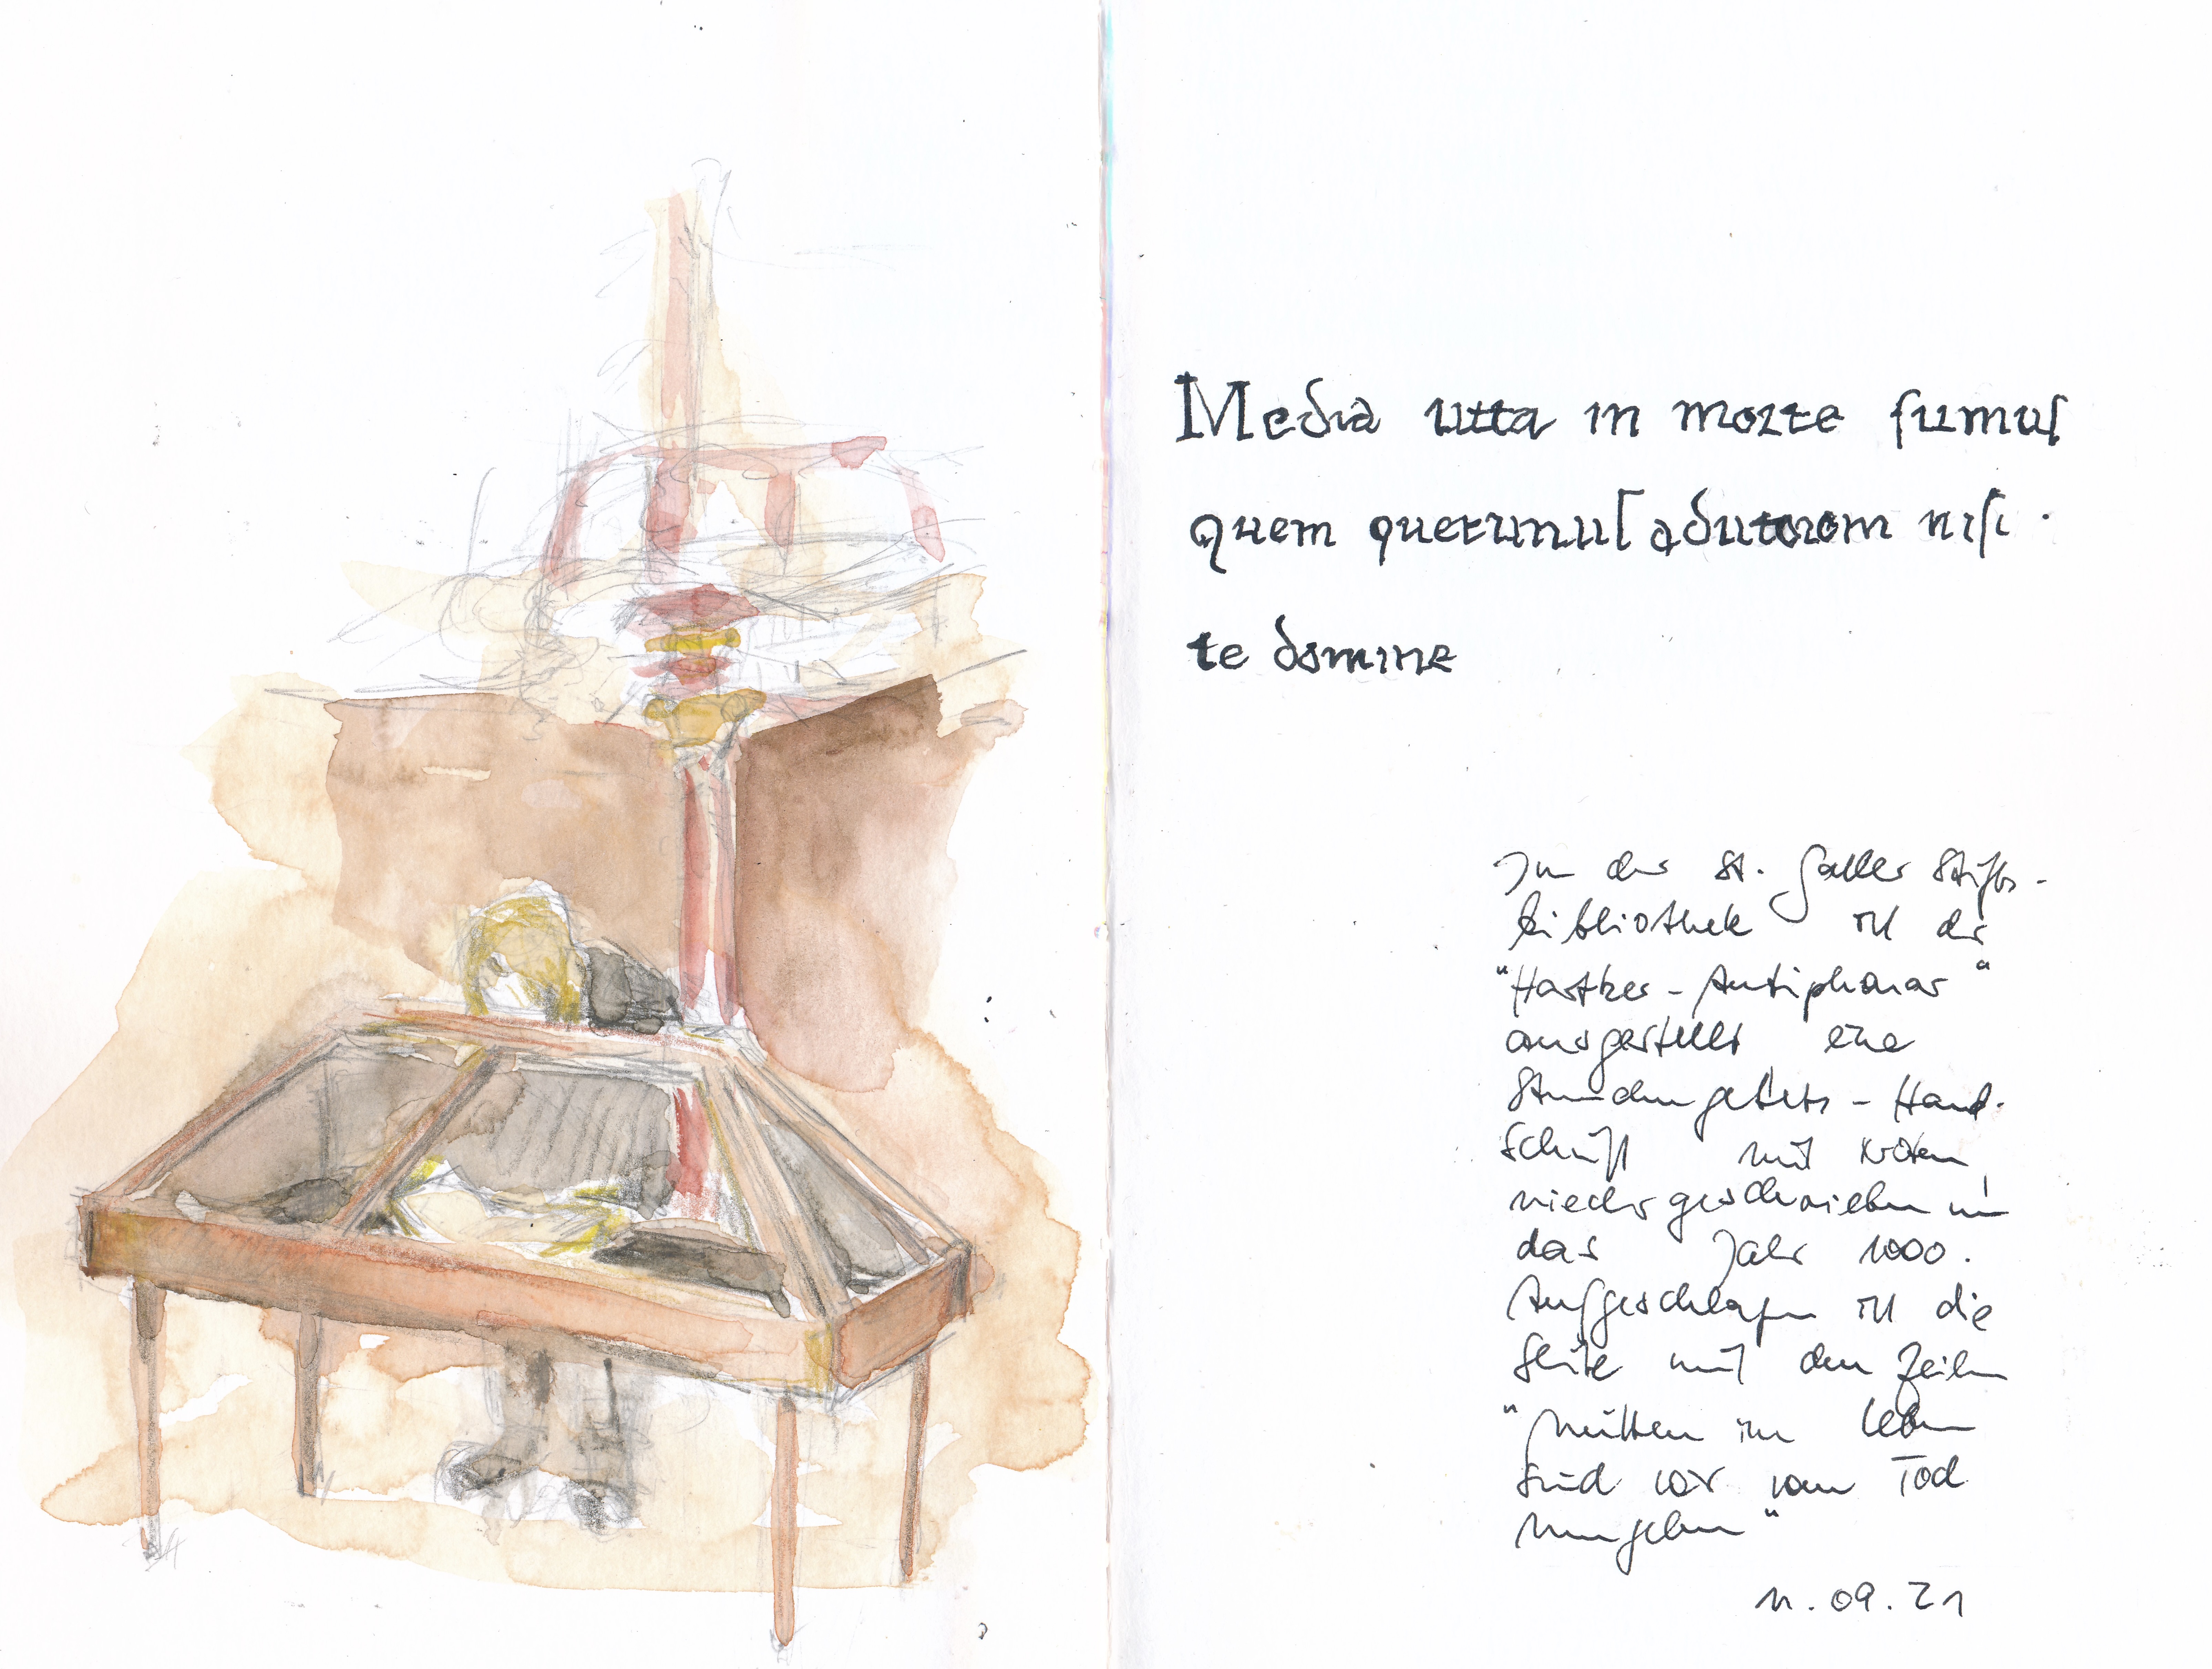 Media uita in morte sumus
quem querimus adiutorem nisi ·
te domine
In der St. Galler Stifts-
bibliothek ist das
"Hartker-Antiphonar"
ausgestellt eine
Stundengebets-Hand-
schrift mit Noten,
niedergeschrieben um
das Jahr 1000.
Aufgeschlagen ist die
Seite mit den Zeilen
"Mitten im Leben
sind wir vom Tod
umgeben"
11.09.21